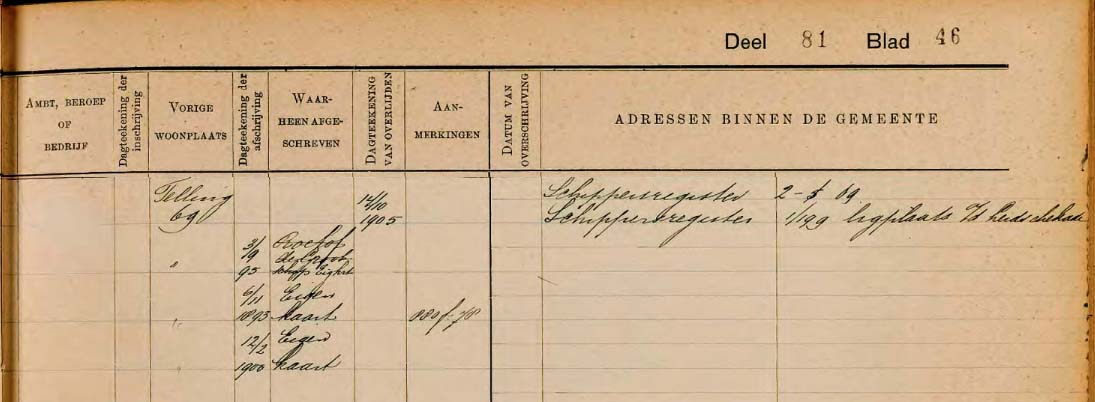 Deel 81 Blad 46
AMBT, BEROEP OF BEDRIJF
Dagteekening der inschrijving
VORIGE WOONPLAATS
Dagteekening der afschrijving
WAAR-HEEN AFGE-SCHREVEN
DAGTEEKENING VAN OVERLIJDEN
AAN-MERKINGEN
DATUM VAN OVERSCHRIJVING
ADRESSEN BINNEN DE GEMEENTE
Telling 69
12/10 1905
Schippersregister 2 - 69
Schippersregister 1/1 99 ligplaats a/d
3/9 95
"
6/11 1893 Eigen kaart
"
12/2 1900 Eigen kaart